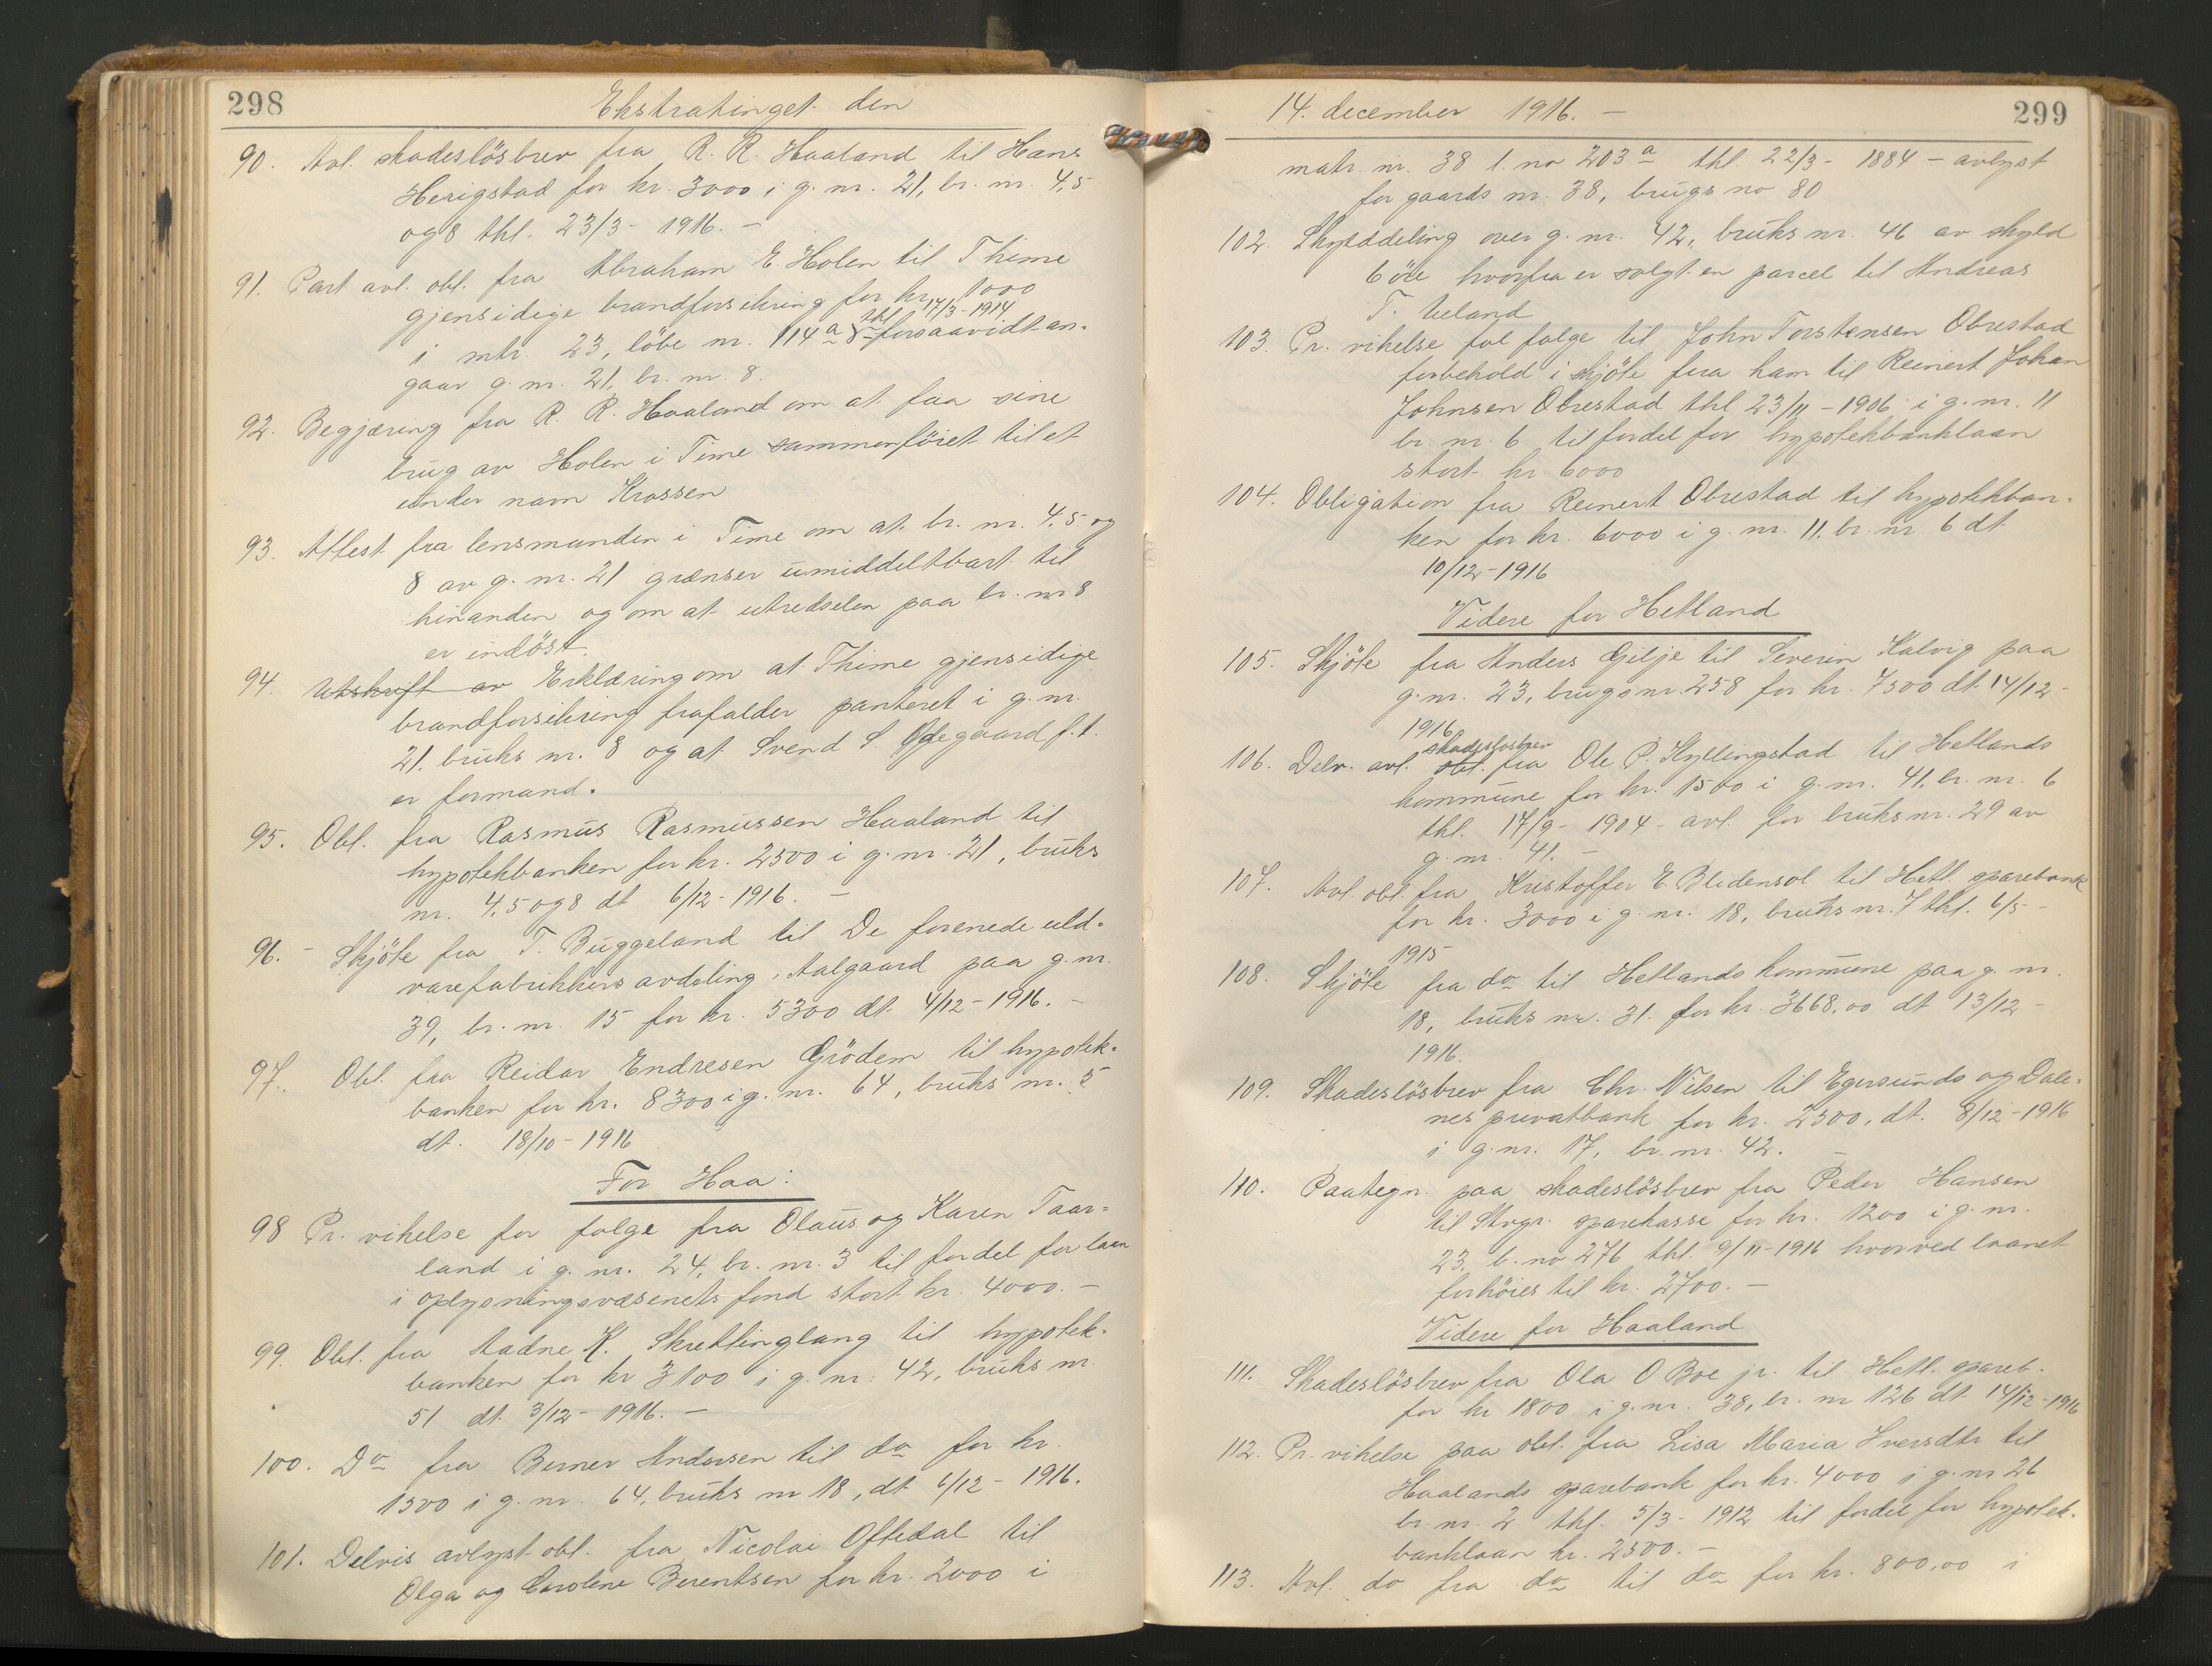 298
Ekstratinget den
90. Avl. skadeslösbrev fra R. R. Haaland til Hans
Herigstad for kr. 3000 i g. nr. 21, br. nr. 4,5
og 8 thl. 23/3 - 1916. -
91. Part avl. obl. fra Abraham E. Holen til Thime
gjensidige brandforsikring for kr. 1000
i mtr. 23, löbe nr. 114 a thl 17/3 - 1914 forsaavidt an-
gaar g. nr. 21, br. nr. 8.
92. Begjæring fra R. R. Haaland om at faa sine
brug av Holen i Time sammenföiet til et
under navn Krossen
93. Attest fra lensmanden i Time om at br. nr. 4,5 og
8 av g. nr. 21 grænser umiddeltbart til
hinanden og om at utredselen paa br. nr 8
er indöst.
94. Utskrift av Erklæring om at Thime gjensidige
brandforsikring frafalder panteret i g. nr.
21. bruks nr. 8 og at Svend S. Ødegaard f. t.
er formand.
95. Obl. fra Rasmus Rasmussen Haaland til
hypotekbanken for kr. 2500 i g. nr. 21, bruks
nr. 4,5 og 8 dt 6/12 - 1916. -
96. - Skjöte fra T. Buggeland til De forenede uld-
varefabrikkers avdeling, Aalgaard paa g. nr.
39, br. nr. 15 for kr. 5300 dt. 4/12 - 1916. -
97. Obl. fra Reidar Endresen Grödem til hypotek-
banken for kr. 8300 i g. nr. 64, bruks nr. 5
dt. 18/10 - 1916
For Haa:
98 Pr. vikelse for folge fra Olaus og Karen Taar-
land i g. nr. 24, br. nr. 3 til fordel for laan
i oplysningsvæsenets fond stort kr. 4000. -
99. Obl. fra Aadne K. Skretlinglang til hypotek-
banken for kr 3100 i g. nr. 42, bruks nr.
51 dt. 3/12 - 1916. -
100. Do fra Berner Andersen til do for kr.
1500 i g. nr. 64, bruks nr 18, dt 6/12 - 1916.
101. Delvis avlyst obl. fra Nicolai Oftedal til
Olga og Caroline Berentsen for kr. 2000 i
14. december 1916. -
299
matr. nr. 38 l. no 203 a thl 22/3 - 1884 - avlyst
for gaards nr. 38, brugs no 80
102. Skylddeling over g. nr. 42, bruks nr. 46 av skyld
6 öre hvorfra er solgt en parcel til Andreas
T. Ueland
103. Pr. vikelse fol folge til John Torstensen Obrestad
forbehold i skjöte fra ham til Reinert Johan
Johnsen Obrestad thl 23/11 - 1906 i g. nr. 11
br. nr. 6 til fordel for hypotekbanklaan
stort kr. 6000
104. Obligation fra Reinert Obrestad til hypotekban-
ken for kr. 6000 i g. nr. 11. br. nr 6 dt
10/12 - 1916
Videre for Hetland
105. Skjöte fra Anders Gilje til Severin Kalvig paa
g. nr. 23, brugs nr. 258 for kr. 7500 dt. 14/12 -
1916
106. Delv. avl. obl. skadeslosbrev fra Ole P. Kyllingstad til Hetlands
kommune for kr. 1500 i g. nr. 41, br. nr. 6
thl. 17/9 - 1904 - avl. for bruks nr. 29 av
g. nr. 41. -
107. Avl. obl. fra Kristoffer E. Blidensol til Hetl. sparebank
for kr. 3000 i g. nr. 18, bruks nr. 7 thl. 6/5 -
1915
108. Skjöte fra do til Hetlands kommune paa g. nr.
18, bruks nr. 31. for kr. 3668,00 dt 13/12 -
1916.
109. Skadeslösbrev fra Chr. Nilsen til Egersunds og Dale-
nes privatbank for kr. 2500, dt. 8/12 - 1916
i g. nr. 17, br. nr. 42. -
110. Paategn. paa skadeslösbrev fra Peder Hansen
til Stvgr. sparekasse for kr. 1200 i g. nr.
23. b. no 276 thl. 9/11 - 1916 hvorved laanet
forhöies til kr. 2700. -
Videre for Haaland
111. Skadeslösbrev fra Ola O Boe jr. til Hetl. spareb.
for kr 1800 i g. nr. 38, br. nr 126 dt 14/12 - 1916
112. Pr. vikelse paa obl. fra Lisa Maria Iversdtr til
Haalands sparebank for kr. 4000 i g. nr 26
br. nr. 2 thl. 5/3 - 1912 til fordel for hypotek-
banklaan kr. 2500. -
113. Avl. do fra do til do for kr. 800,00 i